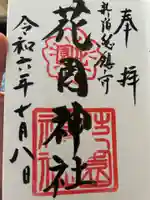 奉拝
新宿総鎮守
花園神社
令和六年十月八日